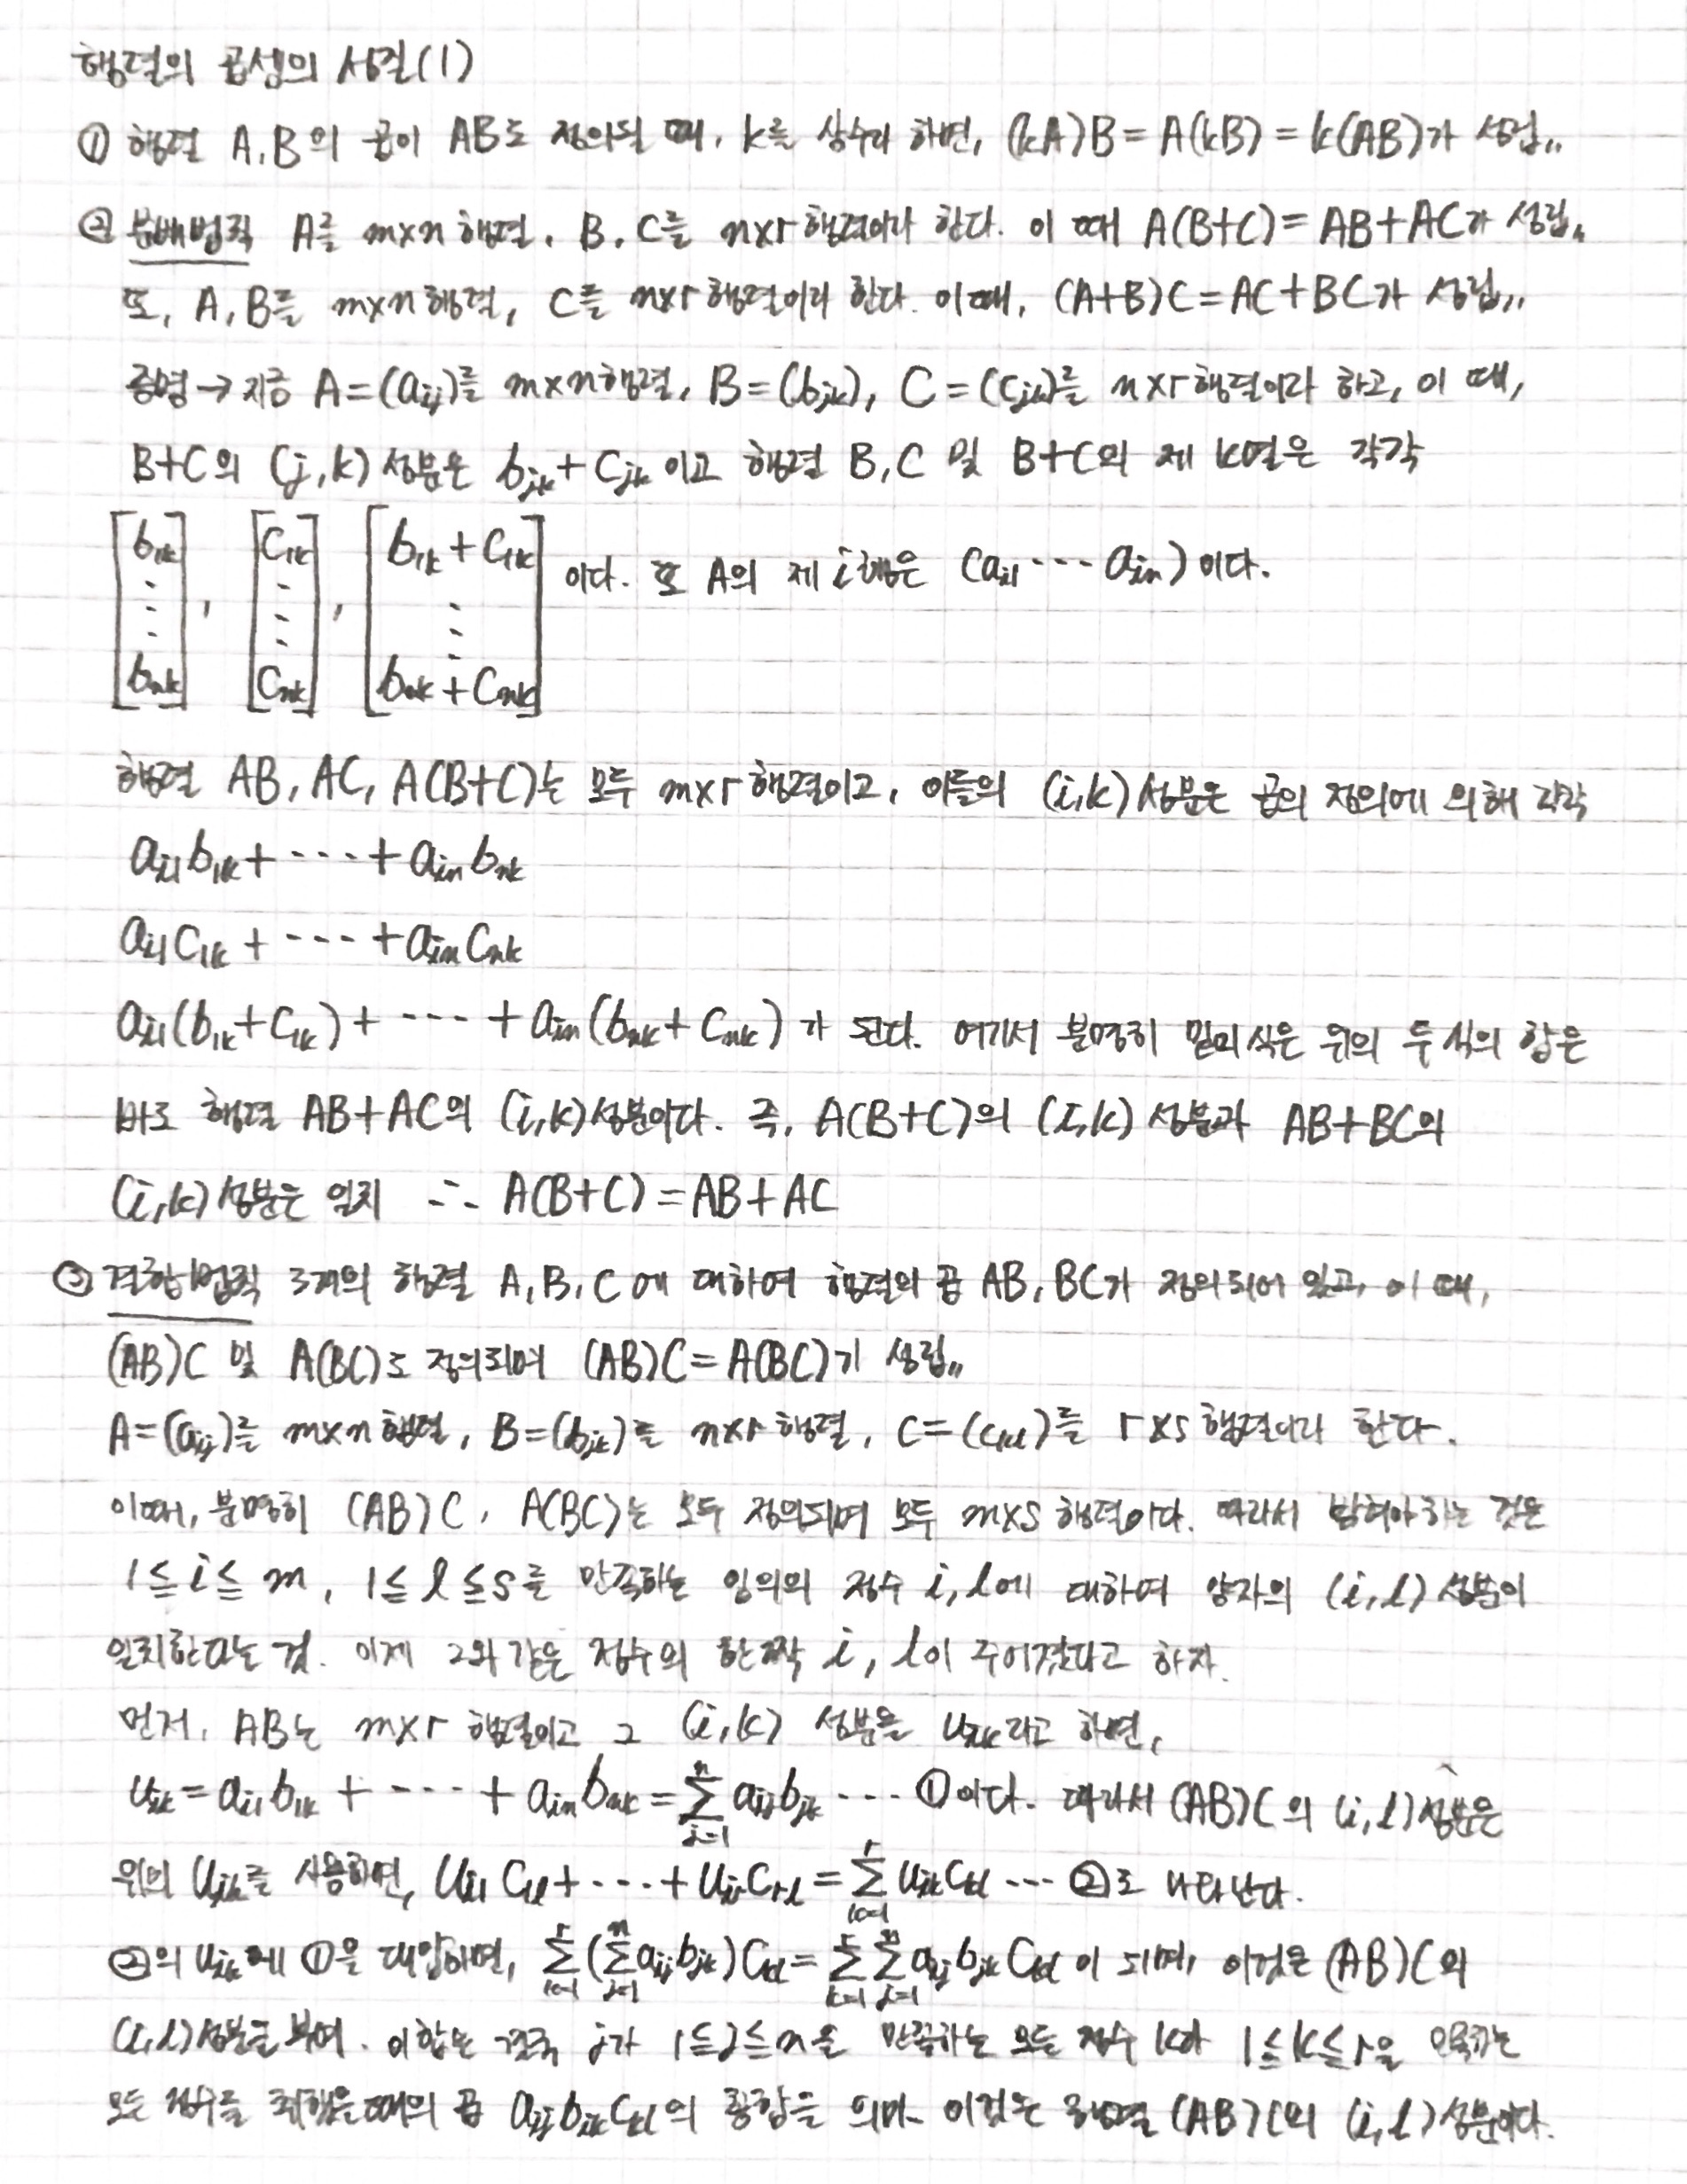 행렬의 곱셈의 성질(1)
① 행렬 A, B의 곱이 AB도 정의될 때, k를 상수라 하면, (kA)B = A(kB) = k(AB)가 성립,,
② 분배법칙 A를 m×n 행렬, B, C를 n×r 행렬이라 한다. 이 때 A(B+C) = AB+AC가 성립,,
또, A, B를 m×n 행렬, C를 n×r 행렬이라 한다. 이때, (A+B)C = AC+BC가 성립,,
증명 → 지금 A=(aij)를 m×n행렬, B=(bjk), C=(cjk)를 n×r 행렬이라 하고, 이 때,
B+C의 (j,k)성분은 bjk+cjk 이고 행렬 B, C 및 B+C의 제 k열은 각각
[b1k ⋮ bnk], [c1k ⋮ cnk], [b1k+c1k ⋮ bnk+cnk] 이다. 또 A의 제 i행은 (ai1 ··· ain)이다.
행렬 AB, AC, A(B+C)는 모두 m×r 행렬이고, 이들의 (i,k)성분은 곱의 정의에 의해 각각
ai1b1k + ···· + ainbnk
ai1c1k + ···· + aincnk
ai1(b1k+c1k) + ···· + ain(bnk+cnk)가 된다. 여기서 분명히 맨 식은 위의 두 식의 합은
바로 행렬 AB+AC의 (i,k)성분이다. 즉, A(B+C)의 (i,k) 성분과 AB+BC의
(i,k)성분은 일치 ∴ A(B+C) = AB+AC
③ 결합법칙 3개의 행렬 A, B, C에 대하여 행렬의 곱 AB, BC가 정의되어 있고, 이 때,
(AB)C 및 A(BC)도 정의되며 (AB)C = A(BC)가 성립,,
A=(aij)를 m×n 행렬, B=(bjk)를 n×r 행렬, C=(ckl)를 r×s 행렬이라 한다.
이때, 분명히 (AB)C, A(BC)는 모두 정의되며 모두 m×s 행렬이다. 따라서 밝혀야하는 것은
1≦i≦m, 1≦l≦s를 만족하는 임의의 정수 i, l에 대하여 양자의 (i,l)성분이
일치한다는 것. 이제 그와 같은 정수의 한 짝 i, l이 주어졌다고 하자.
먼저, AB는 m×r 행렬이고 그 (i,k) 성분을 uik라고 하면,
uik = ai1b1k + ···· + ainbnk = Σ(j=1..n) aijbjk ··· ①이다. 따라서 (AB)C의 (i,l)성분은
위의 uik를 사용하면, ui1c1l + ···· + uircrl = Σ(k=1..r) uikckl ··· ②로 나타난다.
②의 uik에 ①을 대입하면, Σ(k=1..r)(Σ(j=1..n) aijbjk)ckl = Σ(k=1..r)Σ(j=1..n) aijbjkckl이 되며, 이것은 (AB)C의
(i,l)성분을 보여. 이 합은 결국 j가 1≦j≦n을 만족하는 모든 정수 k가 1≦k≦r을 만족하는
모든 정수를 취했을 때의 곱 aijbjkckl의 총합을 의미. 이것은 행렬 (AB)C의 (i,l)성분이다.